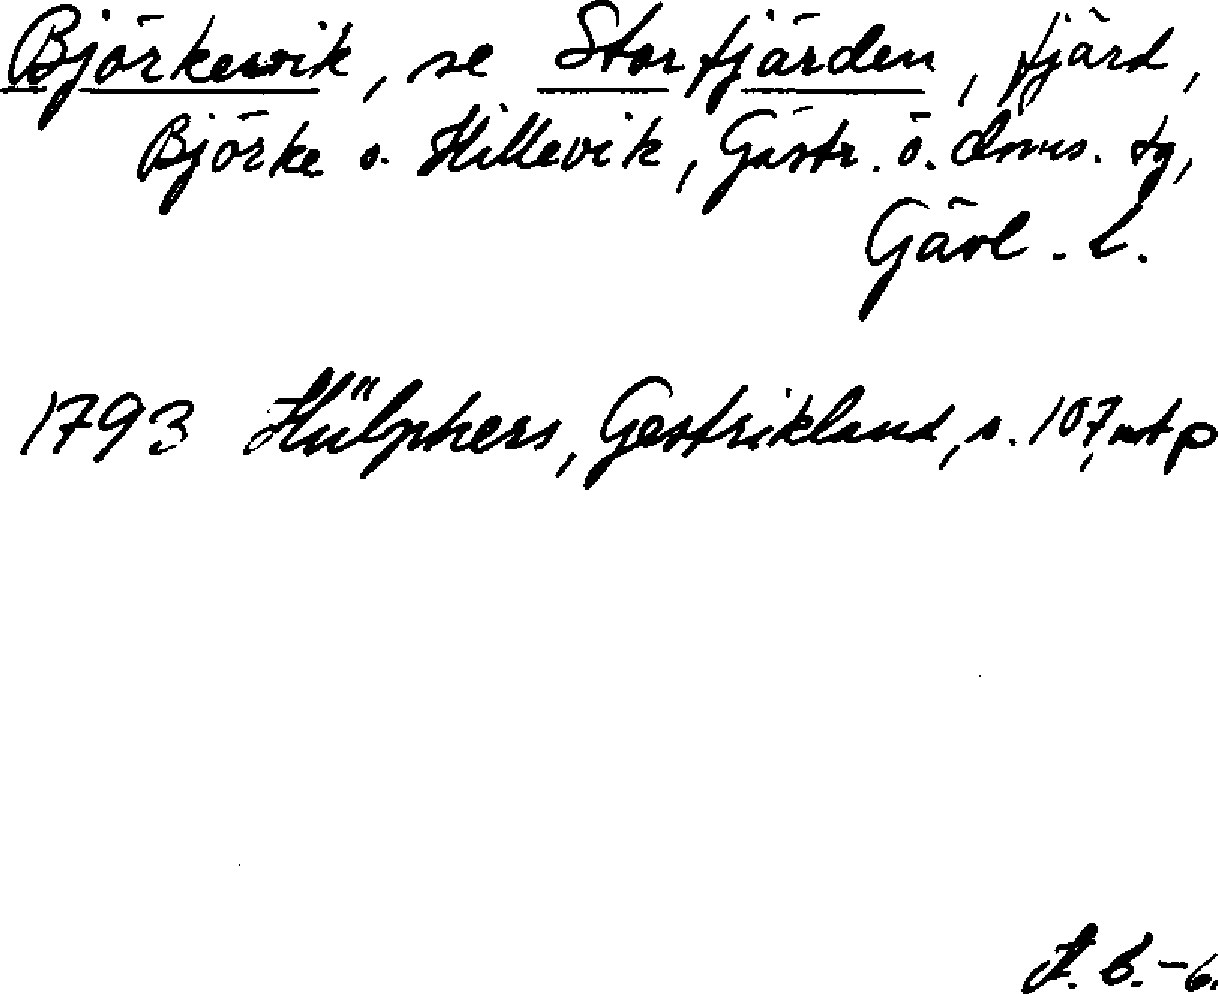 Björkewik, se Storfjärden, fjärd,
Björke o. Hillevik, Gästr. ö. doms. tg,
Gävl. l.
1793 Hülphers, Gestrikland, s. 107,